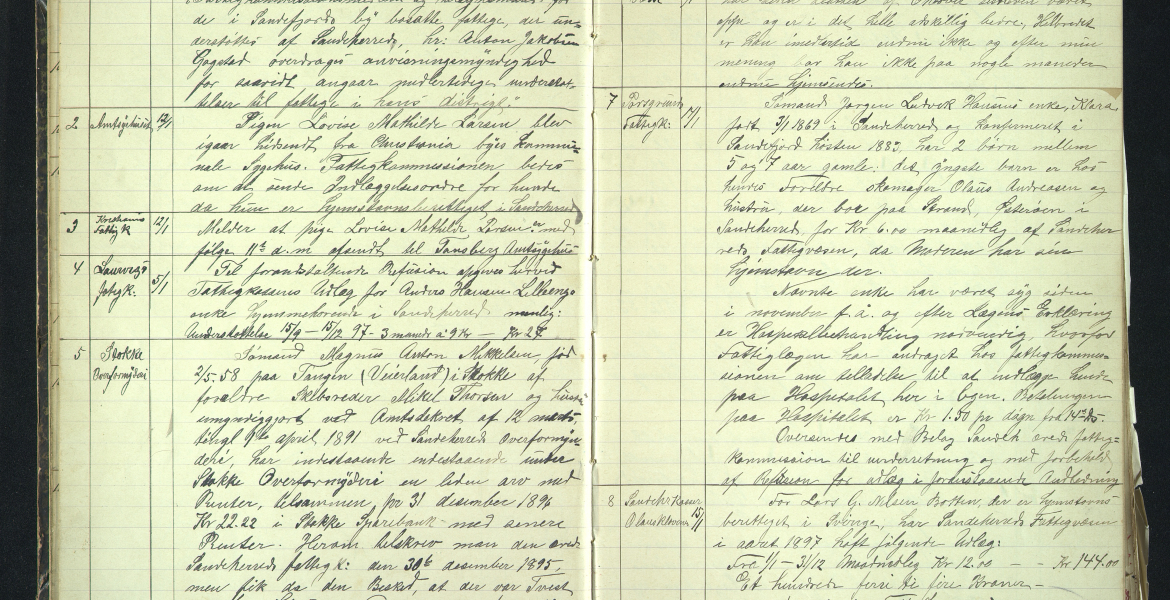 de i Sandefjords by bosatte fattige, der un=
derstøttes af Sandeherred, hr. Anton Jakobsen
Gogstad overdrages anvisningsmyndighed
for saavidt angaar midlertidige understøt-
telser til fattige i hans distrigt.
2 Amtssygehuset 12/1
Pigen Lovise Mathilde Larsen blev
igaar hidsendt fra Christiania byes Kommu-
nale Sygehus. Fattigkommissionen bedes
om at sende Indlæggelsesordre for hende
da hun er hjemstavnsberettiget i Sandeherred
3 Kristiania Fattigk 12/1
Melder at pige Lovise Mathilde Larsen er med
følge 11te d.m. afsendt til Tønsberg Amtssygehus
4 Laurvigs fatigk: 5/1
Til foranstaltende Refusion opgives herved
Fattigkassens Udlæg for Anders Hansen Lillevigs
enke hjemmehørende i Sandeherred nemlig:
Understøttelse 15/9 – 15/12 97 – 3 maaneder a 9 Kr – Kr 27
5 Stokke Overformynderi
Sømand Magnus Anton Mikkelsen, fød
2/5.58 paa Tangen (Veierland) i Stokke af
forældre Skibsreder Mikel Thorsen og hustru
umyndiggjort ved Amtsdekret af 12 marts,
tingl 9de april 1891 ved Sandeherreds Overformyn-
deri har indestaaende under
Stokke Overformynderi en liden arv med
Renter, tilsammen pr 31 desember 1896
Kr 22.22 i Stokke Sparebank med senere
Renter. Herom tilskrev man den ærede
Sandeherreds fattigk: den 30te desember 1895,
men fik da den Besked, at der var Tvist
opp og er i det hele adskillig bedre. Helbredet
er han imidlertid endnu ikke og efter min
mening bør han ikke paa nogle maaneder
endnu hjemsendes.
7 Porsgrunds Fattigk: 7/1
Sømand Jørgen Ludvik Hansens enke, Klara
født 3/1 1869 i Sandeherred og konfirmeret i
Sandefjord høsten 1883, har 2 børn mellem
5 og 7 aar gamle: det yngste barn er hos
hendes Forældre skomager Olaus Andreasen og
hustru, der bor paa Strand, Østerøen i
Sandeherred for Kr 6.00 maanedlig af Sandeher
reds Fattigvæsen, da Moderen har sin
hjemstavn der.
Nævnte enke har været syg siden
i november f.å. og efter Lægens Erklæring
er Hospitalbehandling nødvendig, hvorfor
Fattiglægen har andraget hos fattigkommis-
sionen om tilladelse til at indlægge hende
paa Hospitalet her i byen. Betalingen
paa Hospitalet er Kr 1.50 pr døgn fra 14de ds.
Oversendes med Bilag Sandeherreds fattig=
kommission til underretning og med forbehold
af Refusion for udlæg i fornevnte Anledning
8 Sandeherr Kasser Olaus Klavenes 15/1
For Lars G. Nilsen Botten, der er hjemstavns
berettiget i Tjølinge, har Sandeherreds Fattigvæsen
i aaret 1897 haft følgende Udlæg:
Fra 1/1 – 31/12 Maanedlig Kr 12.00 – – Kr 144.00
Et hundrede førti fire Kroner –